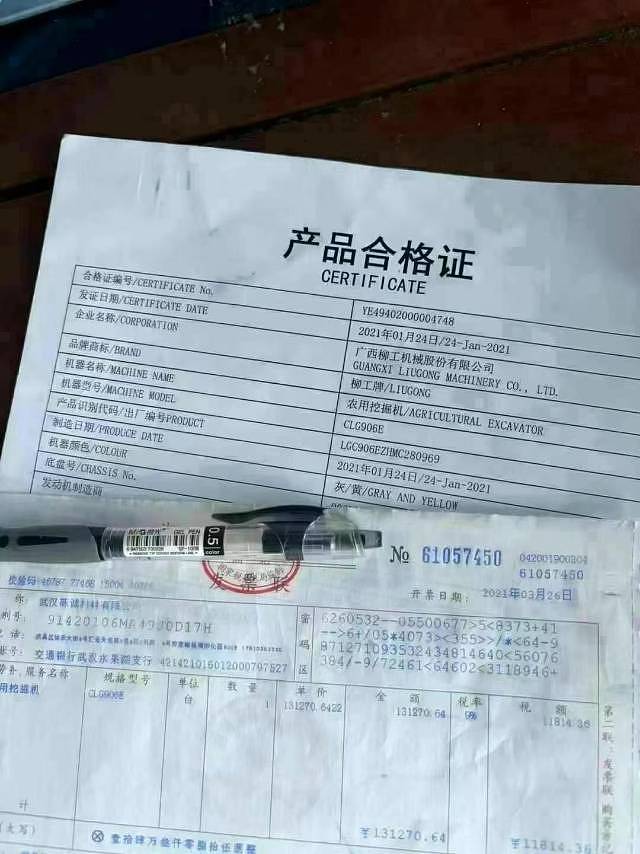 产品合格证
CERTIFICATE
合格证编号/CERTIFICATE No. YE49402000004748
发证日期/CERTIFICATE DATE 2021年01月24日/24-Jan-2021
企业名称/CORPORATION 广西柳工机械股份有限公司
GUANGXI LIUGONG MACHINERY CO., LTD.
品牌商标/BRAND 柳工牌/LIUGONG
机器名称/MACHINE NAME 农用挖掘机/AGRICULTURAL EXCAVATOR
机器型号/MACHINE MODEL CLG906E
产品识别代码/出厂编号PRODUCT LGC906EZHMC280969
制造日期/PRODUCE DATE 2021年01月24日/24-Jan-2021
机器颜色/COLOUR 灰/黄/GRAY AND YELLOW
底盘号/CHASSIS No.
发动机制造商
GEL PEN
0.5
color
№ 61057450
042001900204
61057450
开票日期: 2021年03月26日
校验码:
密码区
6260532--05500677>5<8373+41
-->6+/05*4073><355>>/*<64-9
87127109353243481​4640<56076
384/-9/72461<64602<3118946+
交通银行武汉水果湖支行 421421016012000797527
劳务、服务名称 规格型号 单位 数量 单价 金额 税率 税额
用挖掘机 CLG906E 台 1 131270.6422 131270.64 9% 11814.36
计 ¥131270.64 ¥11814.36
(大写) ⊗壹拾肆万叁仟零捌拾伍圆整
第二联:发票联